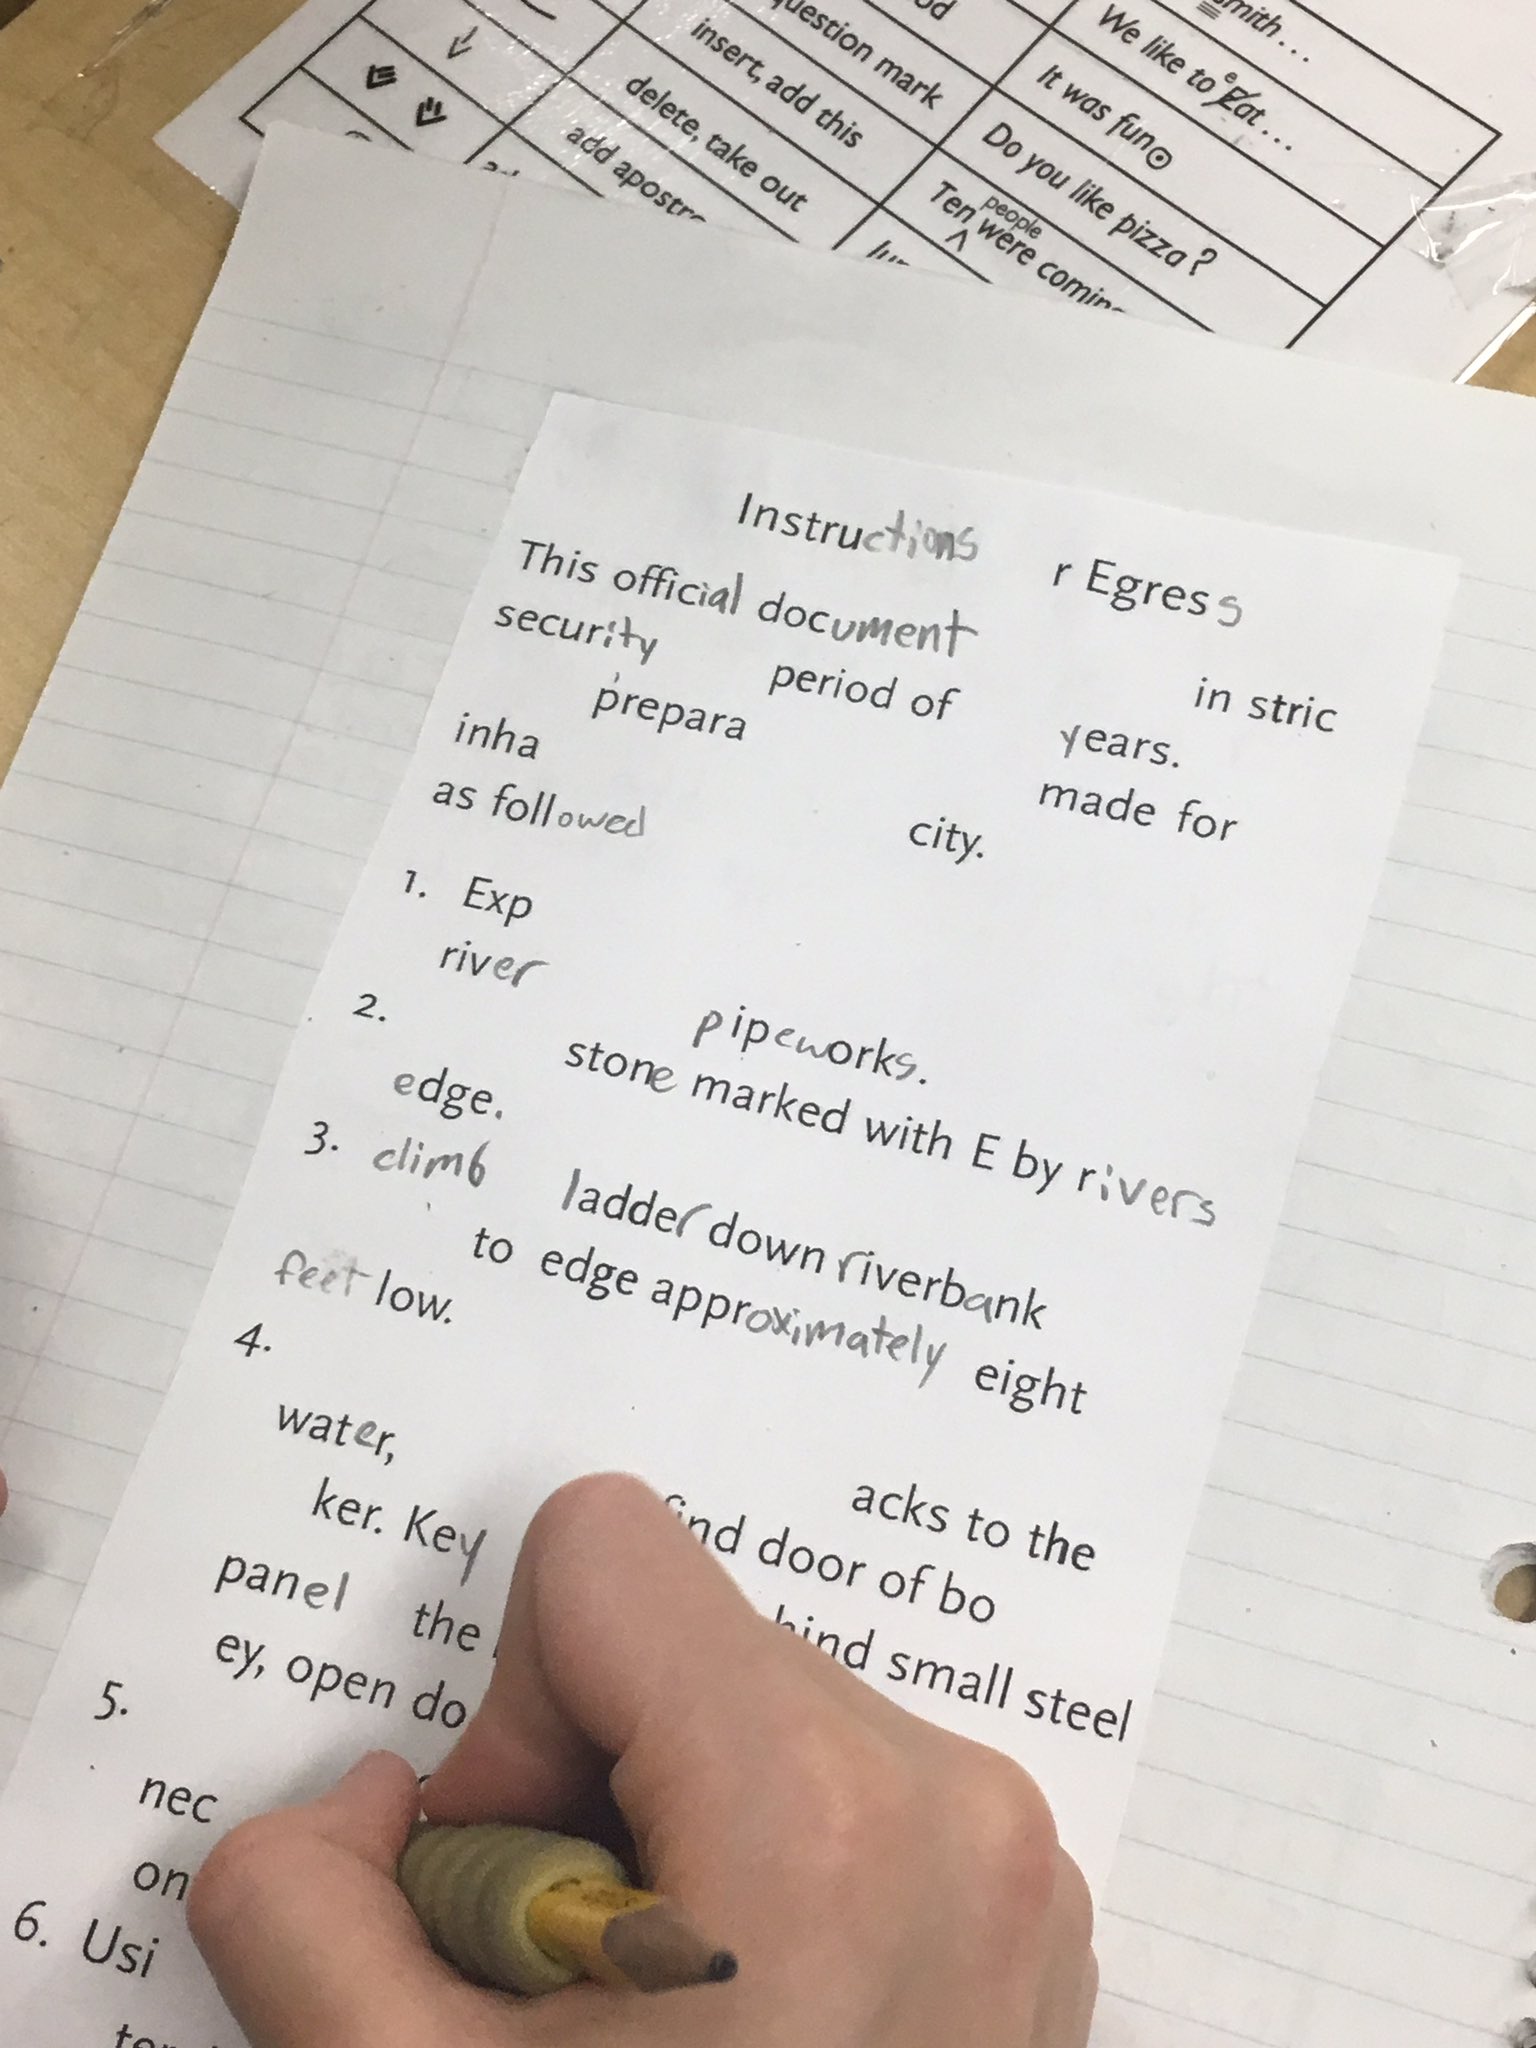 smith...
We like to eEat...
It was fun
question mark
Do you like pizza?
insert, add this
people
Ten were coming
delete, take out
add apostro
Instructions r Egress
This official document in stric
security period of years.
prepara made for
inha city.
as followed
1. Exp
river pipeworks.
2. stone marked with E by rivers
edge.
3. climb ladder down riverbank
to edge approximately eight
feet low.
4. acks to the
water, find door of bo
ker. Key hind small steel
panel the
ey, open do
5.
nec
on
6. Usi